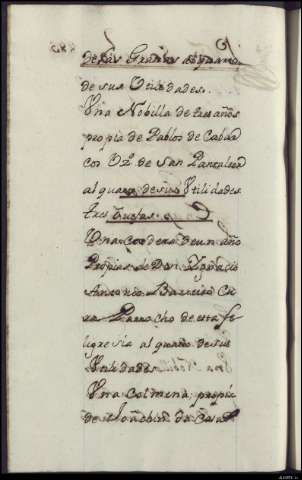 de las Granjas al quarto
de sus Utilidades.
Una Nobilla de tres años
propia de Pablos de Cabar
cos Vº de San Pantaleon
al quarto de sus Utilidades
tres
Una cordera de un año
Propia de Don Ygnacio
Antonio Barreiro Cu
ra Parrocho de esta fe
ligresia al quarto de sus
Utilidades
Una Colmena propia
de Joachin da Casa